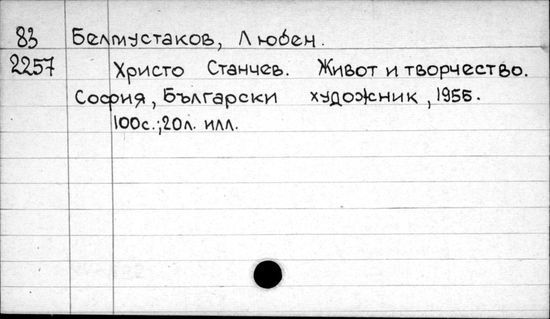 83 Белмустаков, Любен.
2257 Христо Станчев. Живот и творчество.
София, Български художник, 1955.
100с.; 20л. илл.